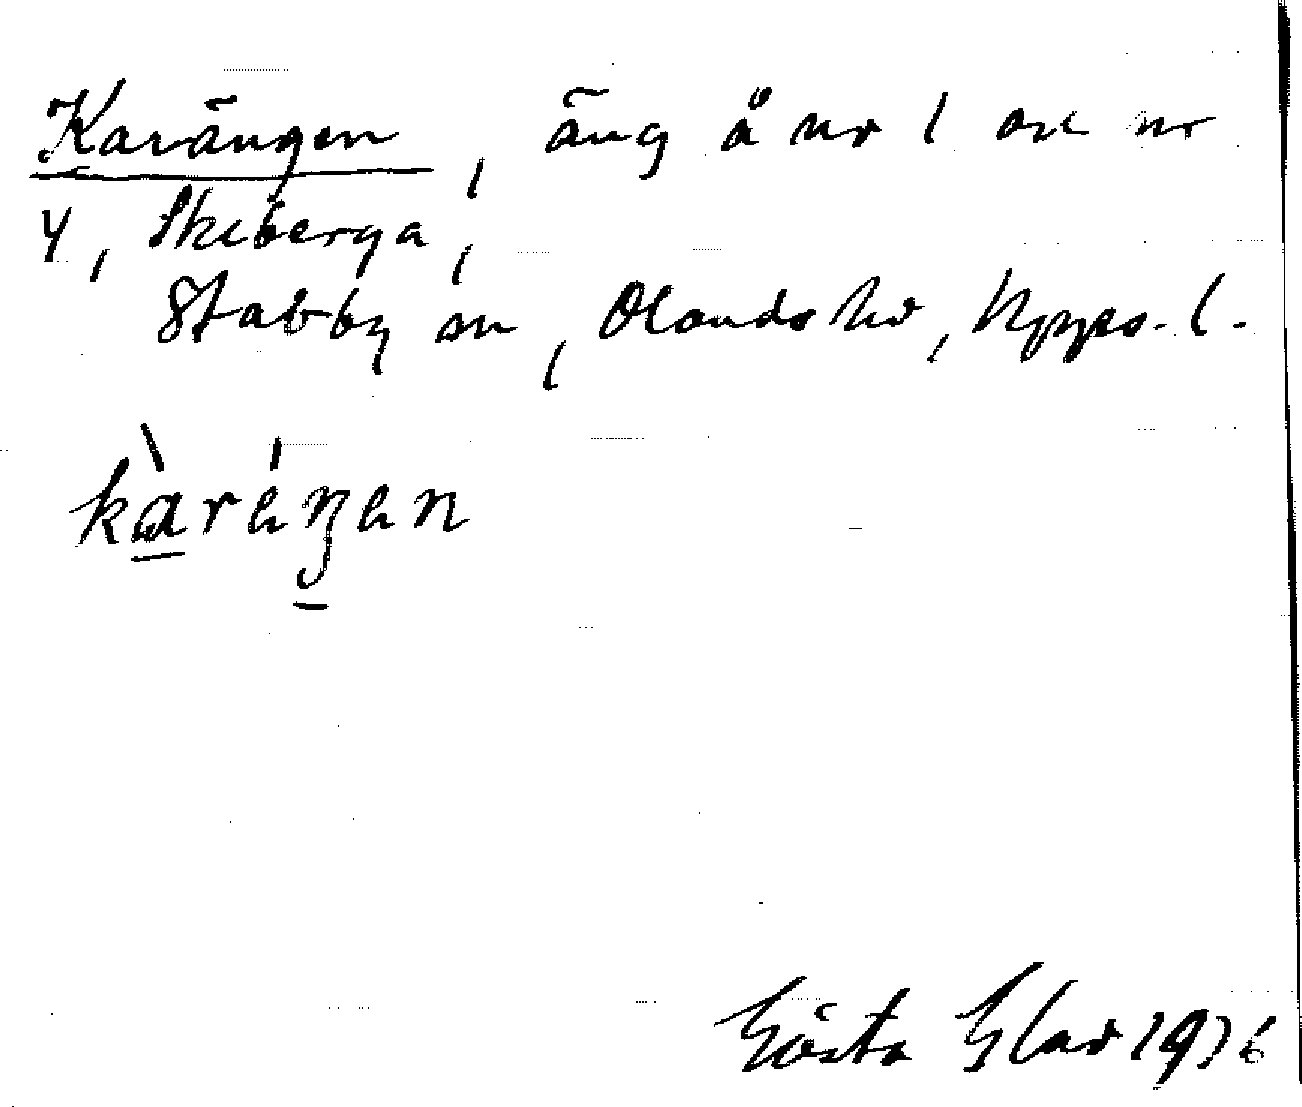 Karängen, äng å nr 1 och nr
4, Skeberga,
Stabby sn, Olands hd, Upps. l.
kàrä́ŋän
Gösta Elar 1976